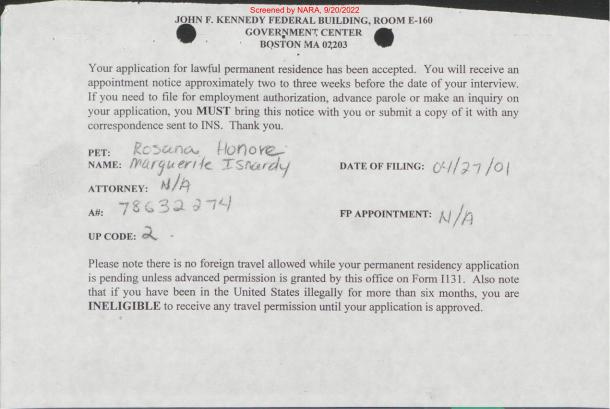 Screened by NARA, 9/20/2022
JOHN F. KENNEDY FEDERAL BUILDING, ROOM E-160
GOVERNMENT CENTER
BOSTON MA 02203
Your application for lawful permanent residence has been accepted. You will receive an
appointment notice approximately two to three weeks before the date of your interview.
If you need to file for employment authorization, advance parole or make an inquiry on
your application, you MUST bring this notice with you or submit a copy of it with any
correspondence sent to INS. Thank you.
PET: Rosana Honore
NAME: Marguerite Isnardy DATE OF FILING: 04/27/01
ATTORNEY: N/A
A#: 78632274 FP APPOINTMENT: N/A
UP CODE: 2
Please note there is no foreign travel allowed while your permanent residency application
is pending unless advanced permission is granted by this office on Form I131. Also note
that if you have been in the United States illegally for more than six months, you are
INELIGIBLE to receive any travel permission until your application is approved.